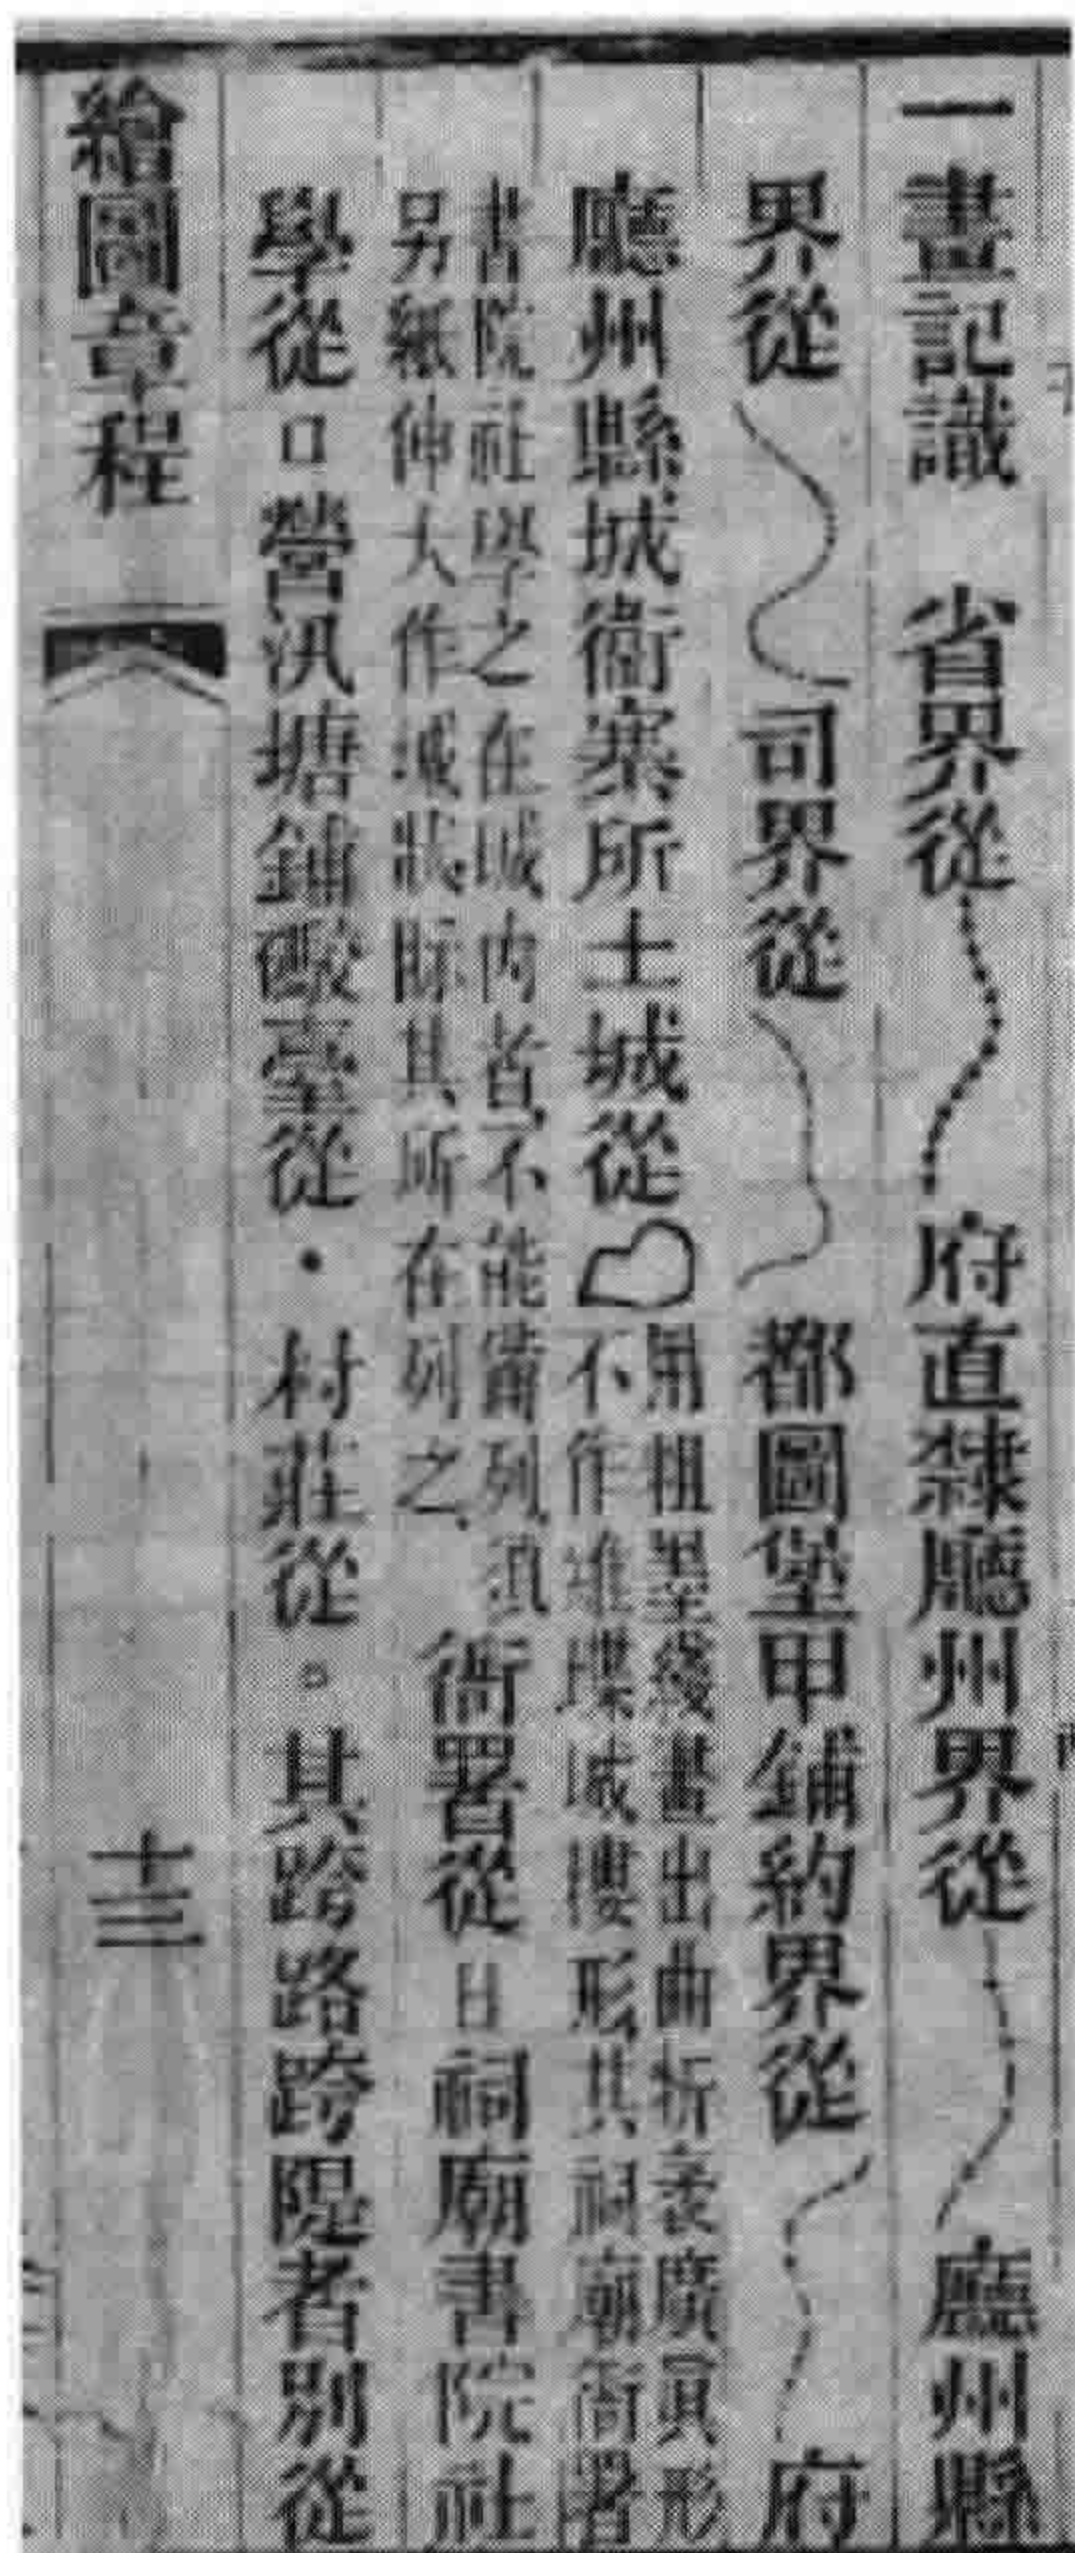 一畫記識　省界從　府直隸廳州界從　廳州縣
界從　司界從　都圖堡甲鋪約界從　府
廳州縣城衞寨所土城從　用粗墨綫畫出曲折袤廣眞形
不作堆堞城樓形其祠廟衙署
書院社學之在城內者不能備列須
另紙伸大作城狀標其所在列之
衙署從　祠廟書院社
學從口營汛塘鋪礮臺從・村莊從。其跨路跨隄者別從
繪圖章程
十三